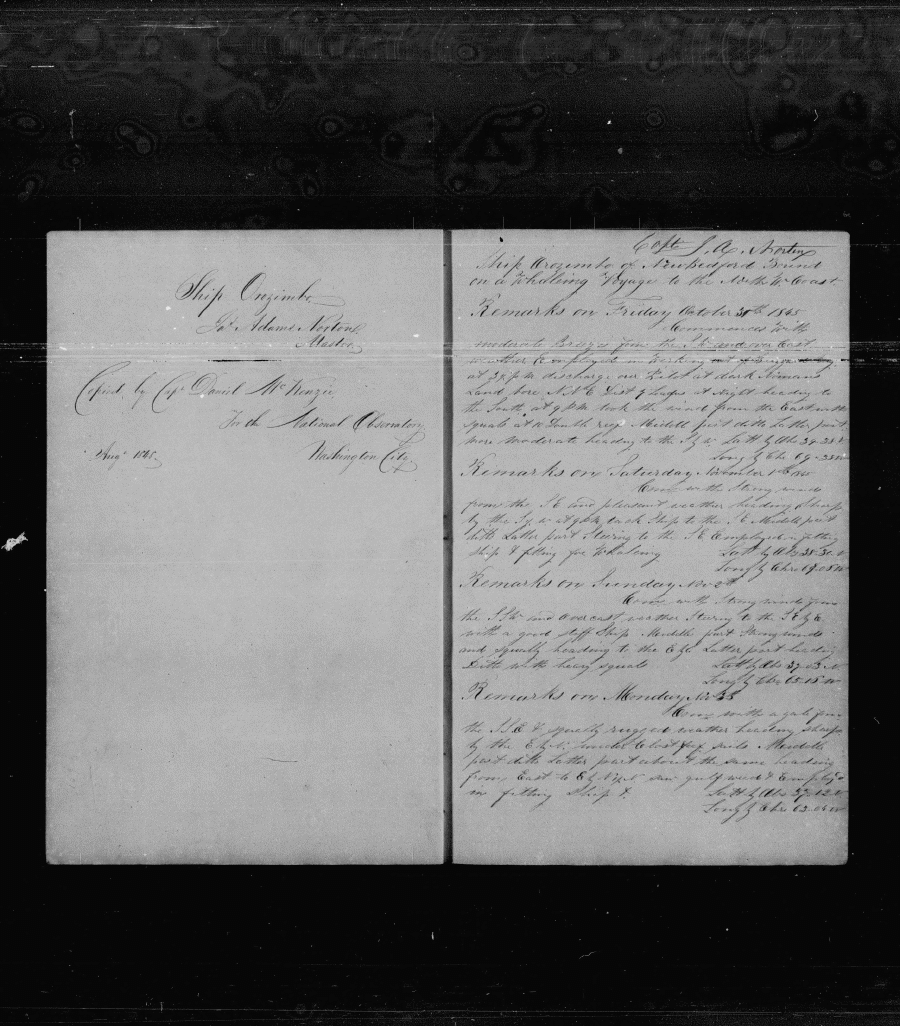 Ship Orozimbo
Jas. Adams Norton
Master
Copied by Capt Daniel McKenzie
For the National Observatory
Augt 1848
Washington City
Capt J. A. Norton
Ship Orozimbo of New Bedford Bound
on a Whaleing Voyage to the North W. Coast
Remarks on Friday October 30th 1845
Commences with
moderate Breezes from the and over East
weather Employed in working
at P.M. discharge our Pilot at dark
Land bore N N E Dist 9 Leags at Night heading to
the South at 9 P.M. took the wind from the East with
squals at a Double reef Middle part ditto Latter part
more moderate heading to the Latt by Obs 39-28 N
Long by Chr 69-
Remarks on Saturday November 1st
Coms with Strong winds
from the S E and pleasant weather heading Sharp
by the at P.M. tack Ship to the S E Middle part
ditto Latter part Steering to the S E Employed in fitting
ship & fitting for Whaleing Latt by Obs 38-30 N
Long by Chro
Remarks on Sunday Nov 2d
Coms with Strong winds from
the S S W and overcast weather Steering to the S E by E
with a good stiff Ship Middle part Strong winds
and squally heading to the E by S Latter part heading
Ditto with heavy squals Latt by Obs 37-53 N
Long by Chr 65-15 W
Remarks on Monday Nov 3d
Coms with a gale from
the S S E & squally rugged weather heading sharp
by the under Close reef sails Middle
part ditto Latter part about the same heading
from East to saw gulf weed & Employ'd
in fitting Ship &. Latt by Obs 37-12 N
Long by Chro 63-04 W